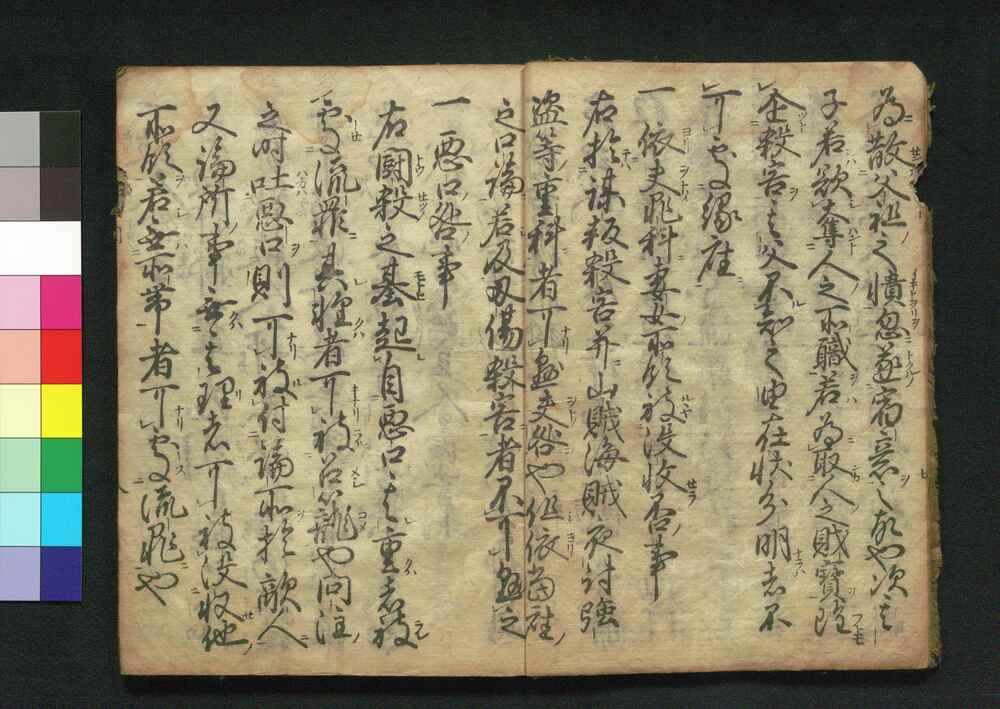 為散父祖之憤忽遂宿意之故也次其
子若欲奪人之所職若為取人之財寶雖
企殺害其父不知之由在状分明者不
可處縁座
一依夫罪科妻女所領被没收否事
右於謀叛殺害并山賊海賊夜討強
盗等重科者可懸夫咎也但依當座
之口論若及刃傷殺害者不可懸之
一悪口咎事
右闘殺之基起自悪口其重者被
處流罪其軽者可被召籠也問注
之時吐悪口則可被付論所於敵人
又論所事無其理者可被没收他
所領若無所帯者可處流罪也